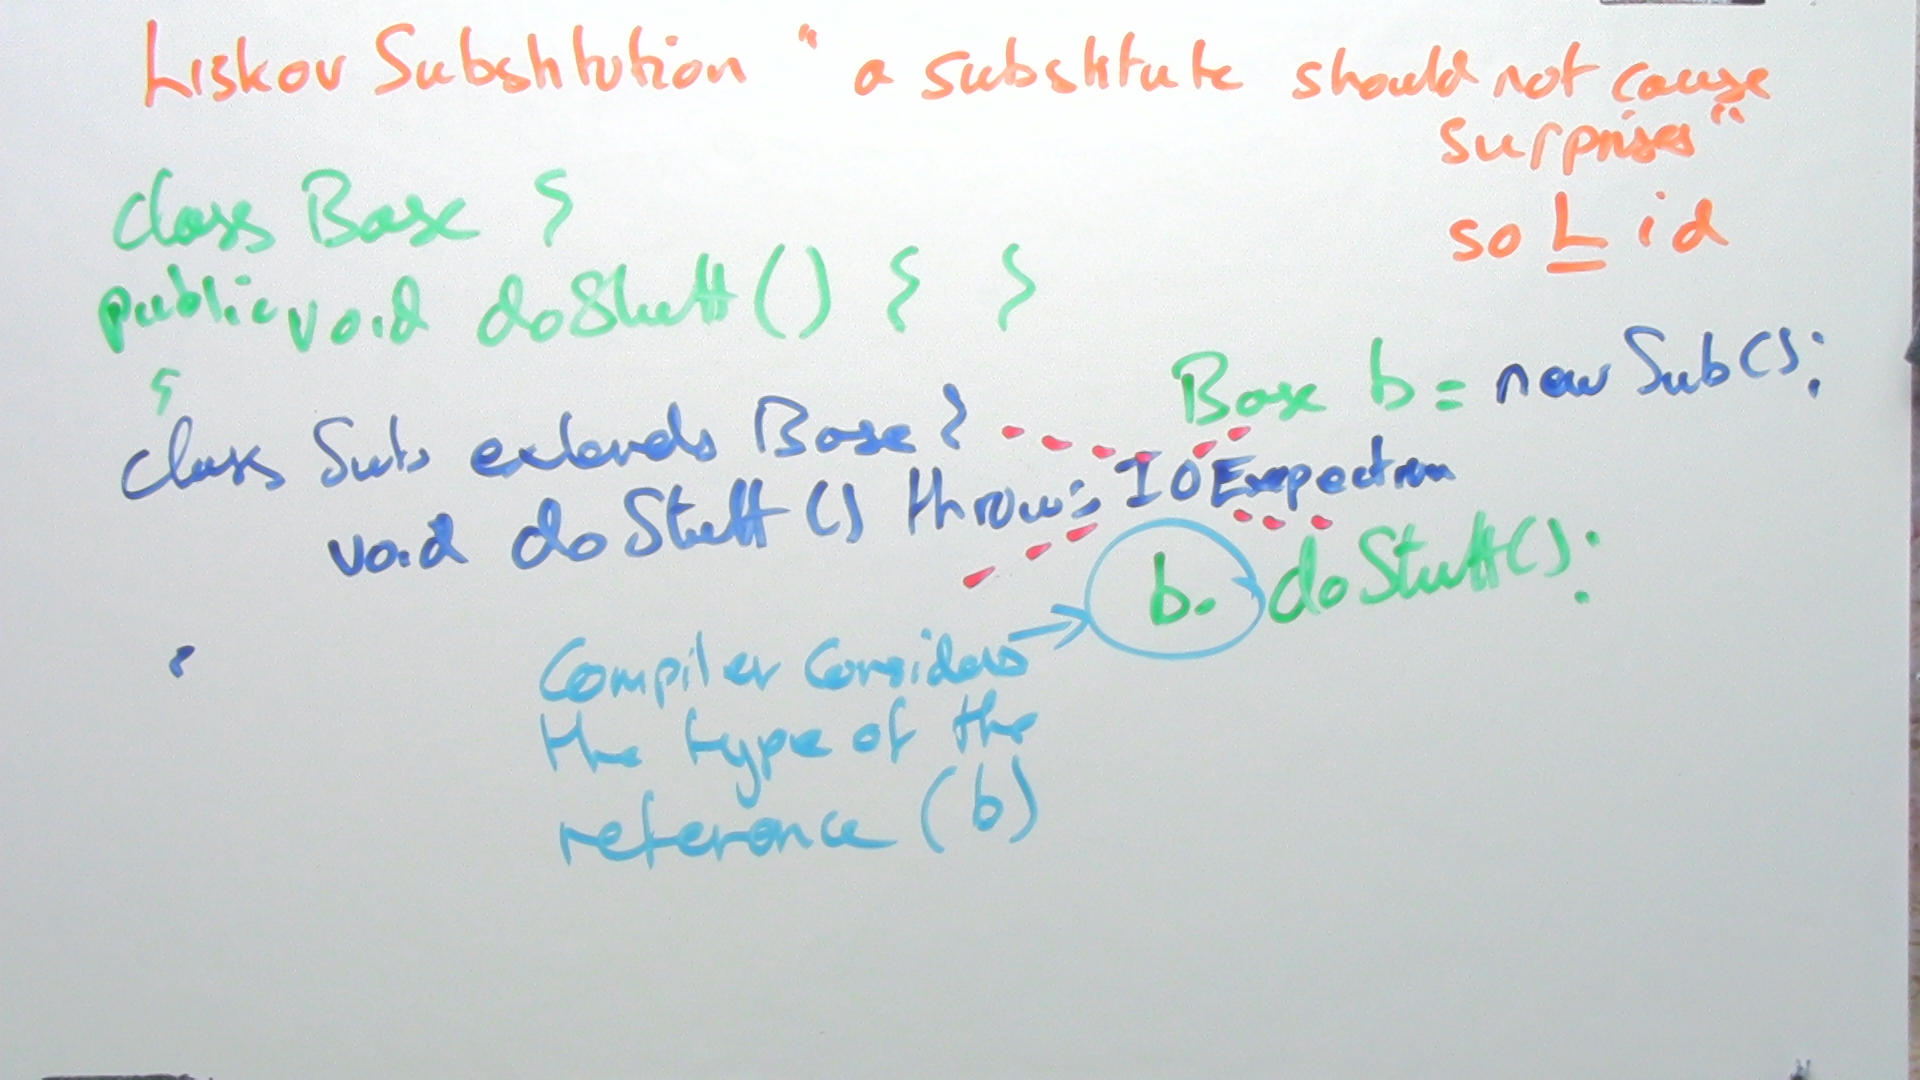 Liskov Substitution "a substitute should not cause
surprises"
soLid
class Base {
public void doStuff() { }
}
Base b = new Sub();
class Sub extends Base {
void doStuff() throws IOExepection
b. doStuff();
Compiler Considers
the type of the
reference (b)